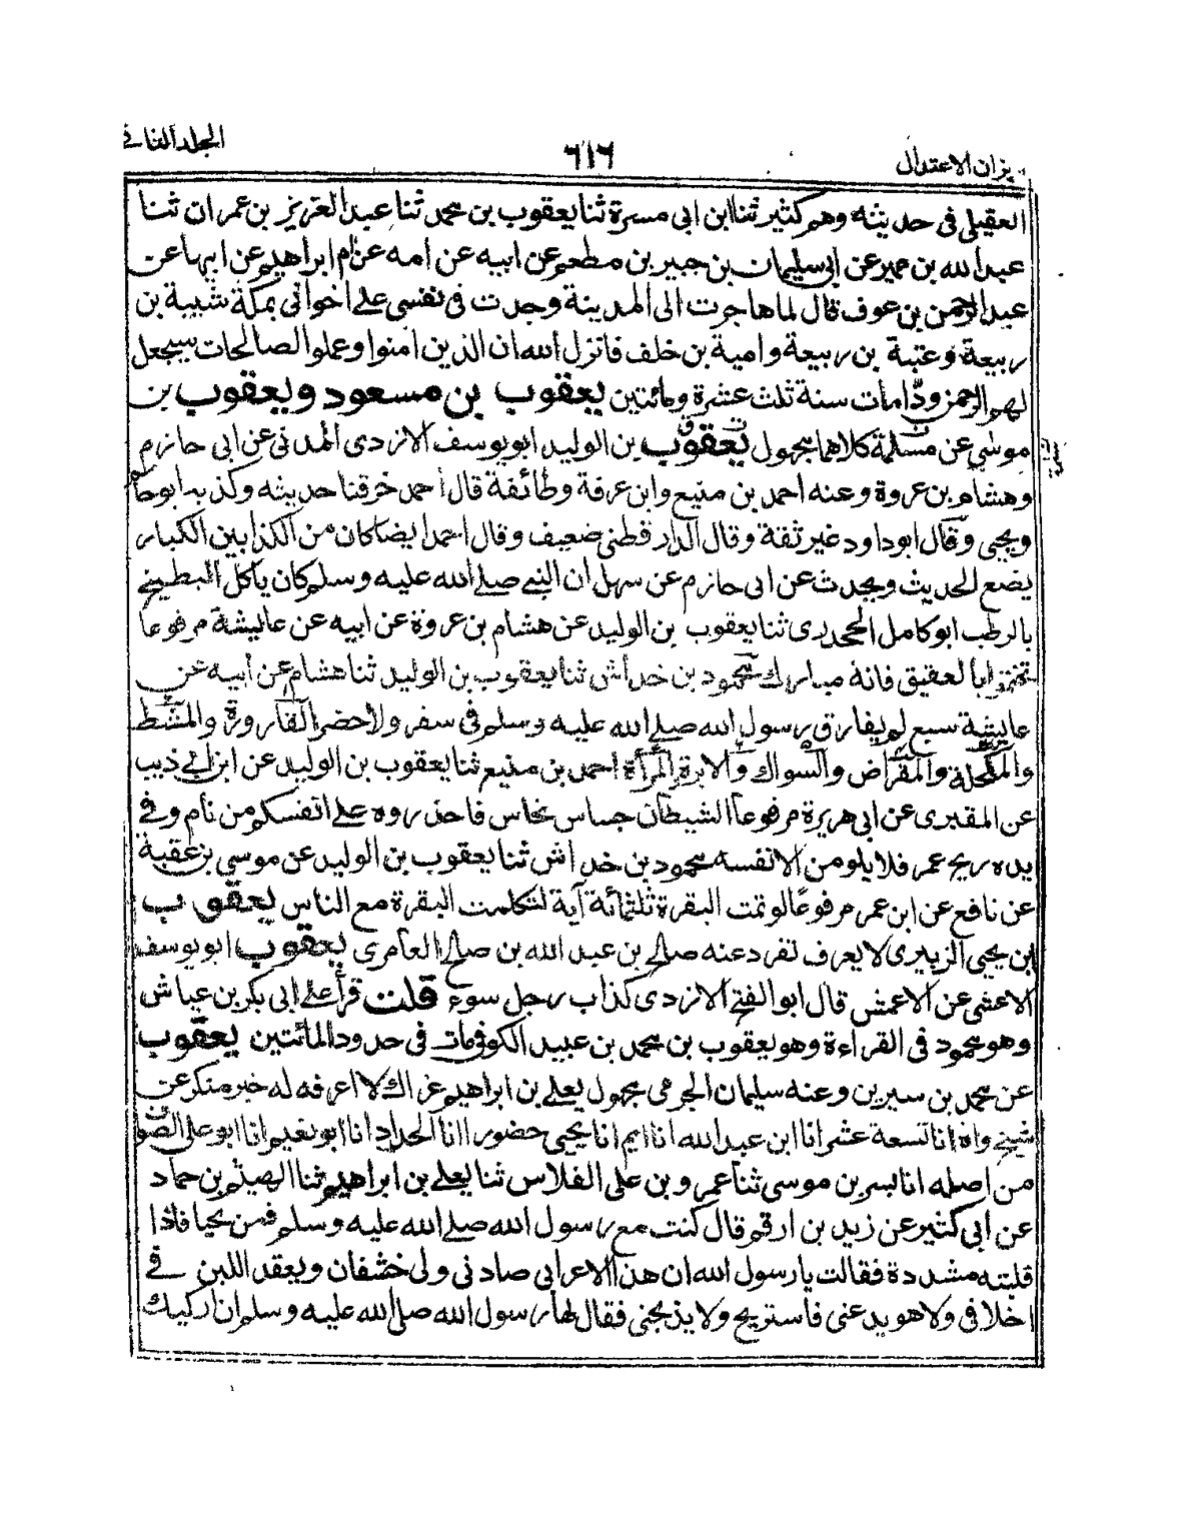 يزان الاعتدال
٦١٦
الجلد الثانى
العقيلى فى حديثه وهم كثير ثنا ابن ابى مسرة ثنا يعقوب بن محمد ثنا عبد العزيز بن عمران ثنا
عبد الله بن عن ابى سليمان بن جبير بن مطعم عن ابيه عن امه عن ام ابراهيم عن ابيها عن
عبد الرحمن بن عوف قال لما هاجرت الى المدينة وجدت فى نفسى على اخوانى بمكة شيبة بن
ربيعة وعتبة بن ربيعة وامية بن خلف فانزل الله ان الذين امنوا وعملوا الصالحات سيجعل
لهم الرحمن ودا مات سنة ثلث عشرة ومائتين يعقوب بن مسعود ويعقوب بن
موسى عن مسلمة كلاهما مجهول يعقوب بن الوليد ابو يوسف الازدى المدنى عن ابى حازم
وهشام بن عروة وعنه احمد بن منيع وابن عرفة وطائفة قال احمد خرقنا حديثه وكذبه ابو حاتم
ويحيى وقال ابو داود غير ثقة وقال الدارقطنى ضعيف وقال احمد ايضا كان من الكذابين الكبار
يضع الحديث ويحدث عن ابى حازم عن سهل ان النبى صلى الله عليه وسلم كان ياكل البطيخ
بالرطب ابو كامل الجحدرى ثنا يعقوب بن الوليد عن هشام بن عروة عن ابيه عن عايشة مرفوعا
تختموا بالعقيق فانه مبارك محمود بن خداش ثنا يعقوب بن الوليد ثنا هشام عن أبيه عن
عايشة سبع لم يفارق رسول الله صلى الله عليه وسلم فى سفر ولا حضر القارورة والمشط
والمكحلة والمقراض والسواك والابرة المرأة احمد بن منيع ثنا يعقوب بن الوليد عن ابن ابى ذيب
عن المقبرى عن ابى هريرة مرفوعا الشيطان حساس فاحذروه على انفسكم من نام وفى
يده ريح غمر فلا يلومن الا نفسه محمود بن خداش ثنا يعقوب بن الوليد عن موسى بن عقبة
عن نافع عن ابن عمر مرفوعا لو تمت البقرة ثلثمائة آية لتكلمت البقرة مع الناس يعقوب
ابن يحيى الزبيرى لا يعرف تفرد عنه صالح بن عبد الله بن صالح العامرى يعقوب ابو يوسف
الاعشى عن الاعمش قال ابو الفتح الازدى كذاب رجل سوء قلت قرأ على ابى بكر بن عياش
وهو محمود فى القراءة وهو يعقوب بن محمد بن عبيد الكوفى مات فى حدود المائتين يعقوب
عن محمد بن سيرين وعنه سليمان الجرمى مجهول يعلى بن ابراهيم غزال لا اعرفه له خبر منكر عن
شيخ واه انا تسعة عشر انا ابن عبد الله انا ايم انا يحيى حضورا انا الحداد انا ابو نعيم انا ابو على الصواف
من اصله انا بسر بن موسى ثنا عمرو بن على الفلاس ثنا يعلى بن ابراهيم ثنا الهيثم بن حماد
عن ابى كثير عن زيد بن ارقم قال كنت مع رسول الله صلى الله عليه وسلم فاذا
مشددة فقالت يا رسول الله ان هذا الاعرابى صادنى ولى خشفان ويعقد اللبن فى
اخلافى ولا هو يدعنى فاستريح ولا يذبحنى فقال لها رسول الله صلى الله عليه وسلم ان تركتك